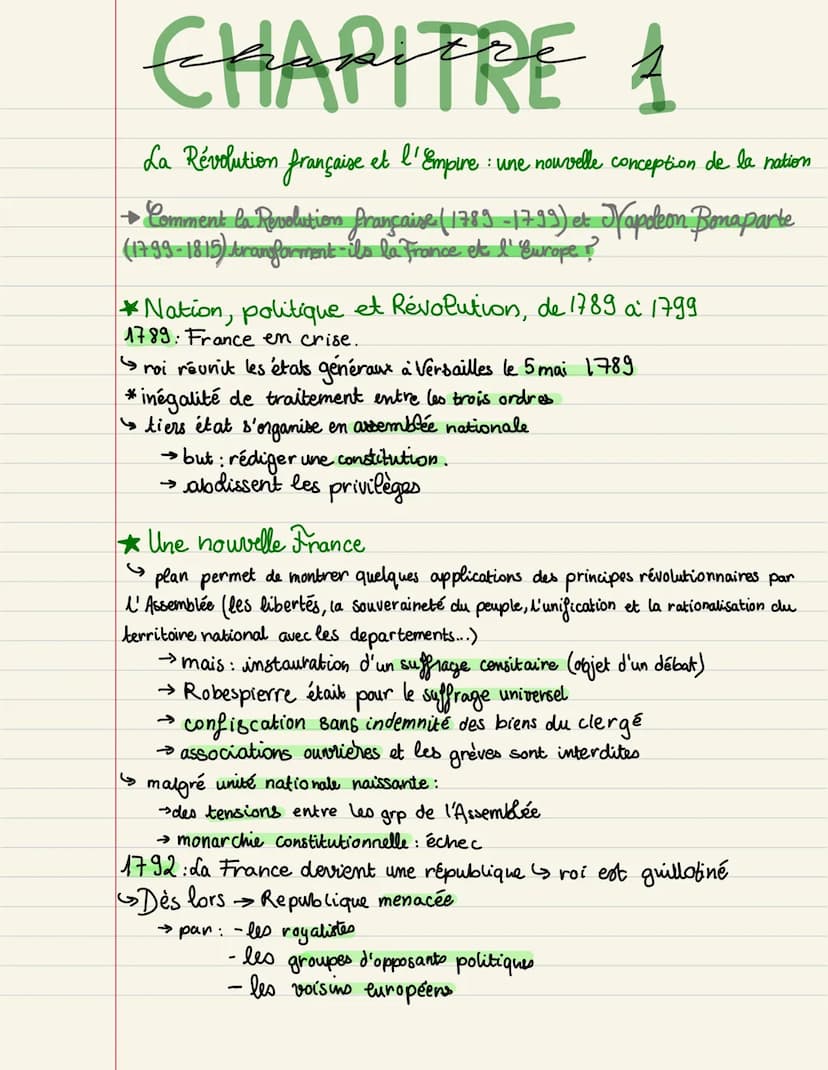 CHAPITRE 1
chapitre
La Révolution française et l'Empire : une nouvelle conception de la nation
→ Comment la Revolution française (1789-1799) et Napoléon Bonaparte
(1799-1815) transforment-ils la France et l'Europe ?
★ Nation, politique et Révolution, de 1789 à 1799
1789 : France en crise.
↳ roi réunit les états généraux à Versailles le 5 mai 1789
* inégalité de traitement entre les trois ordres
↳ tiers état s'organise en assemblée nationale
→ but : rédiger une constitution.
→ abolissent les privilèges
★ Une nouvelle France
↳ plan permet de montrer quelques applications des principes révolutionnaires par
l'Assemblée (les libertés, la souveraineté du peuple, l'unification et la rationalisation du
territoire national avec les departements...)
→ mais : instauration d'un suffrage censitaire (objet d'un débat)
→ Robespierre était pour le suffrage universel
→ confiscation sans indemnité des biens du clergé
→ associations ouvrières et les grèves sont interdites
↳ malgré unité nationale naissante :
→ des tensions entre les grp de l'Assemblée
→ monarchie constitutionnelle : échec
1792 : La France devient une république ↳ roi est guillotiné
↳ Dès lors → Republique menacée
→ par : - les royalistes
- les groupes d'opposants politiques
- les voisins européens